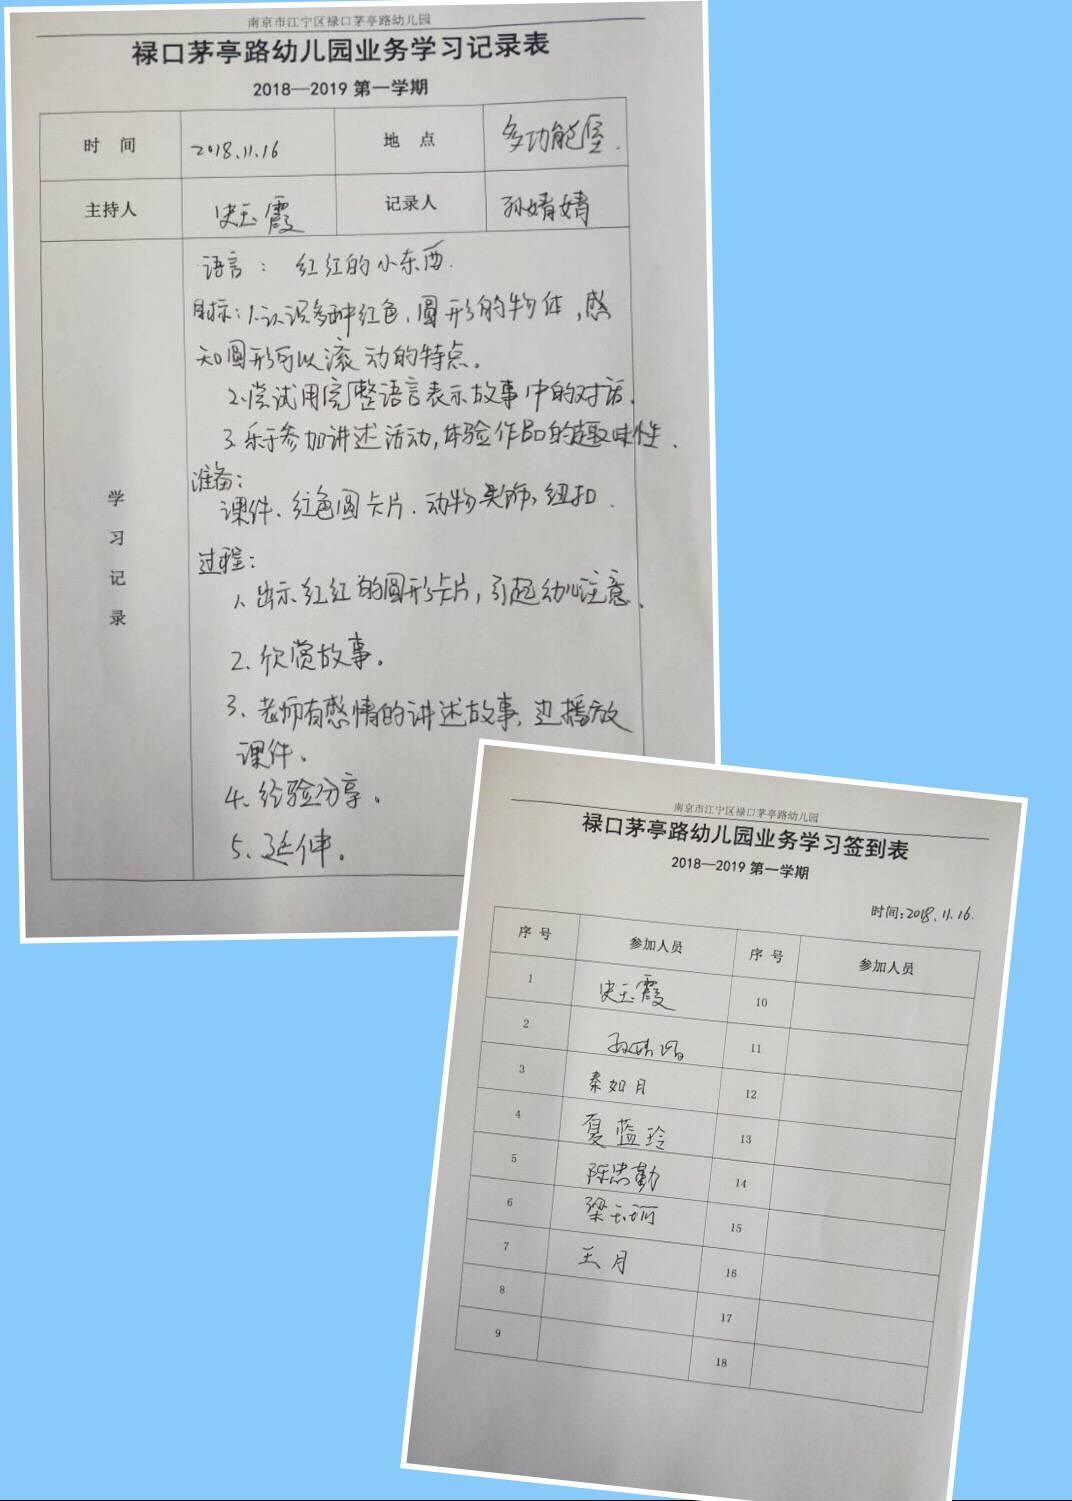 南京市江宁区禄口茅亭路幼儿园
禄口茅亭路幼儿园业务学习记录表
2018—2019 第一学期
时 间 2018.11.16 地 点 多功能室.
主持人 史玉霞 记录人 孙婧婧
学习记录
语言： 红红的小东西.
目标：1.认识多种红色、圆形的物体，感
知圆形可以滚动的特点。
2.尝试用完整语言表示故事中的对话.
3.乐于参加讲述活动,体验作品的趣味性.
准备：
课件、红色圆卡片、动物头饰、纽扣.
过程：
1、出示红红的圆形卡片，引起幼儿注意、
2、欣赏故事。
3、老师有感情的讲述故事，边播放
课件、
4、经验分享。
5、延伸。
南京市江宁区禄口茅亭路幼儿园
禄口茅亭路幼儿园业务学习签到表
2018—2019 第一学期
时间：2018.11.16.
序 号 参加人员 序 号 参加人员
1 史玉霞 10
2 孙婧婧 11
3 秦如月 12
4 夏蓝玲 13
5 陈忠勤 14
6 梁玉珂 15
7 王月 16
8 17
9 18